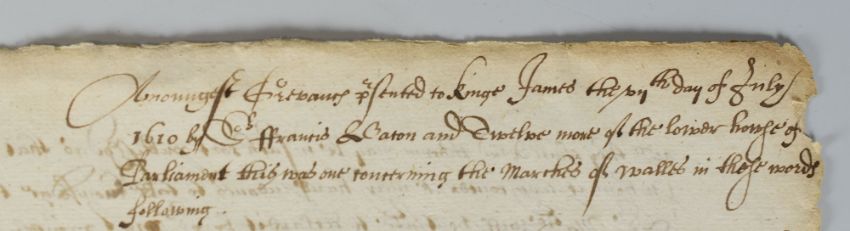 Amoungest Greevances p'sented to kinge James the vijth day of July
1610 by Sr ffrancis Eaton and Twelve more of the lower howse of
Parliament this was one concerning the Marches of Walles in these words
following.